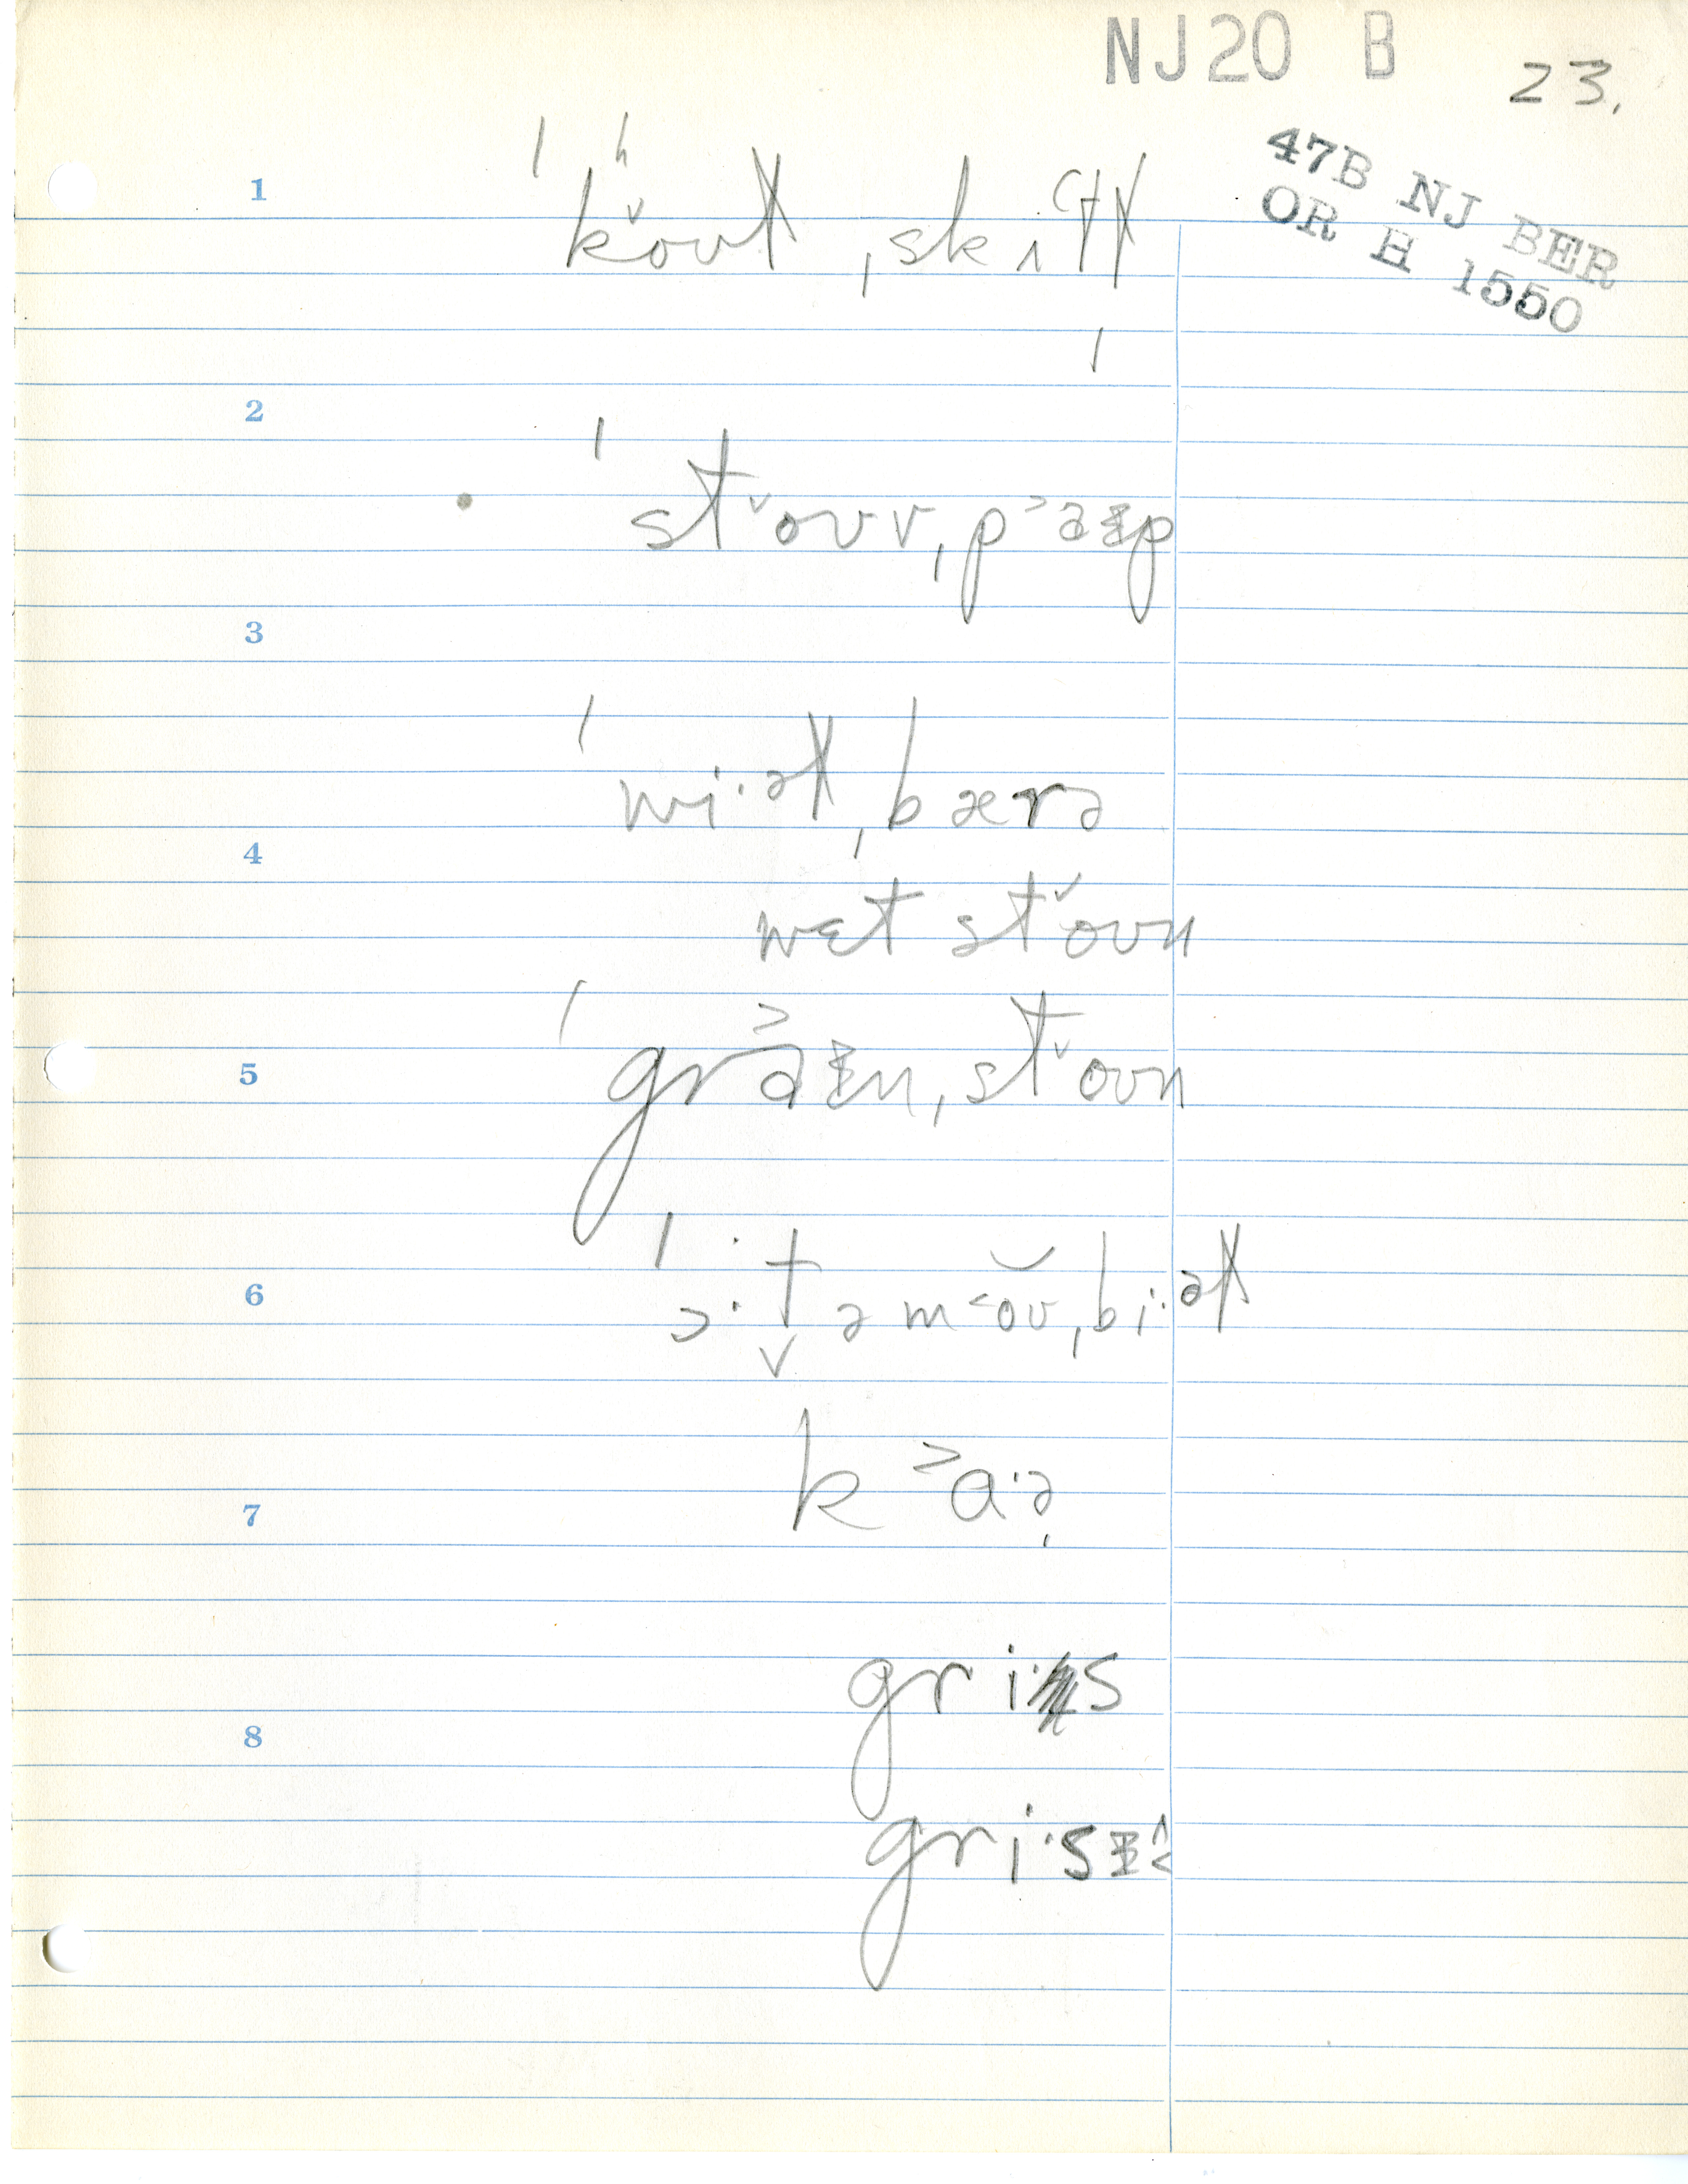 NJ20 B 23.
47B NJ BER
OR H 1550
1
ˈkʰoʊɫ ˌskɪtɫ
2
ˈstoʊv ˌpaɪp
3
ˈwi·əɫ ˌbærə
4
wɛt stoʊn
5
ˈgraɪn ˌstoʊn
6
ˈɔ·təmoʊˌbi·əɫ
7
kɑ·ə
8
gri·s
gri·sɪ